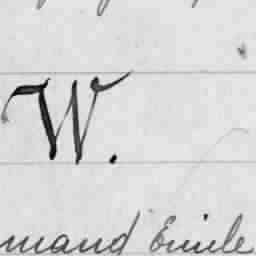 W.
mand Emile